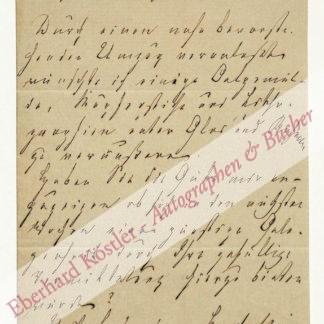 Durch einen nahe bevorste-
henden Umzug veranlaßt
wünschte ich einige Oelgemäl-
de, Kupferstiche und Litho-
graphien unter Glas und
zu veräußern.
Haben Sie die Güte mir an-
zuzeigen ob sich in den nächsten
Wochen eine günstige Gele-
genheit durch Ihre gefällige
Vermittelung hierzu bieten
würde?
Eberhard Köstler Autographen & Bücher